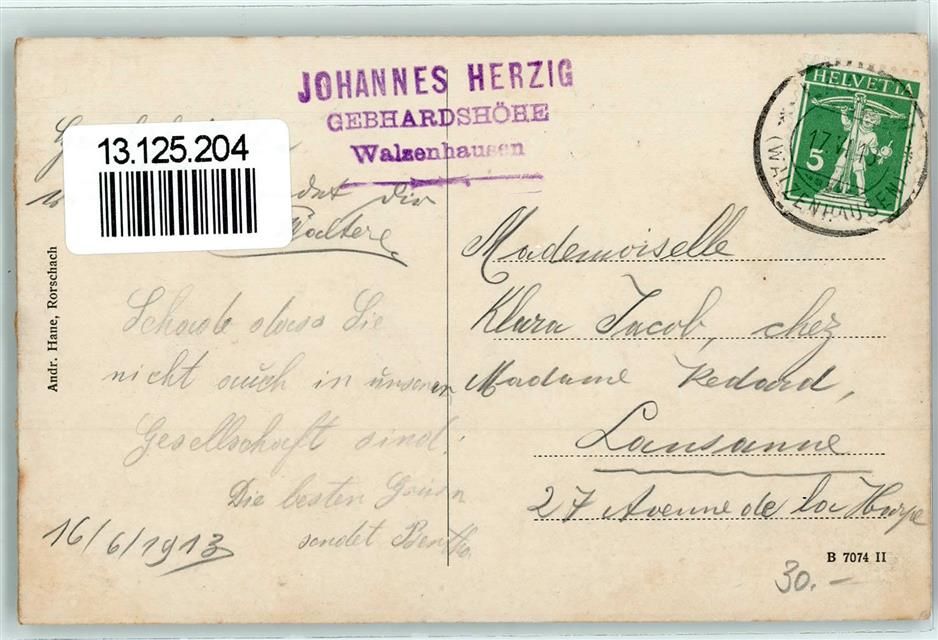 JOHANNES HERZIG
GEBHARDSHÖHE
Walzenhausen
HELVETIA
5
17.VI.13
(WALZENHAUSEN)
13.125.204
Dir
Walter
Schade dass Sie
nicht auch in unserer
Gesellschaft sind.
Die besten
sendet Bertha
16/6/1913
Andr. Hane, Rorschach
Mademoiselle
Klara Jacob, chez
Madame Redard,
Lausanne
27 Avenue de la Harpe
B 7074 II
30.-